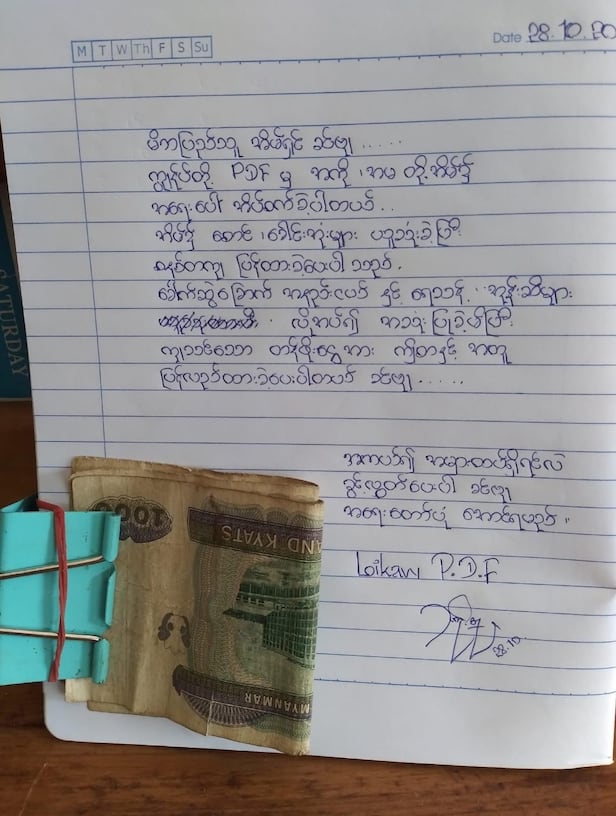 M T W Th F S Su
Date 28.10.20
မိဘပြည်သူ အိမ်ရှင် ခင်ဗျာ ......
ကျွန်ုပ်တို့ PDF မှ အကို ၊အမ တို့အိမ်၌
အရေးပေါ် အိပ်စက်ခဲ့ပါတယ် ..
အိမ်၌ စောင် ၊ခေါင်းအုံးများ ယူသုံးခဲ့ပြီး
ပြန်ထားခဲ့ပေးပါ သည်.
ခေါက်ဆွဲခြောက် အနည်းငယ် နှင့် ရေသန့် ..အုန်းဆီများ
လိုအပ်၍ အသုံးပြုခဲ့ပါပြီး
ကျသင့်သော တန်ဖိုးငွေအား ဤစာနှင့် အတူ
ပြန်လည်ထားခဲ့ပေးပါတယ် ခင်ဗျာ ......
အကယ်၍ အမှားတပ်ရှိရင်လဲ
ခွင့်လွှတ်ပေးပါ ခင်ဗျာ
အရေးတော်ပုံ အောင်ရမည် ..
Loikaw P.D.F
28.10
1000
AND KYATS
MYANMAR
SATURDAY